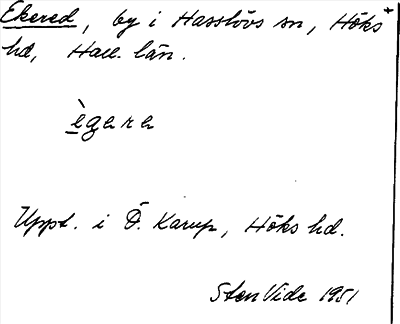 Ekered, by i Hasslövs sn, Höks
hd, Hall. län.
ègere
Uppt. i Ö. Karup, Höks hd.
Sten Vide 1951